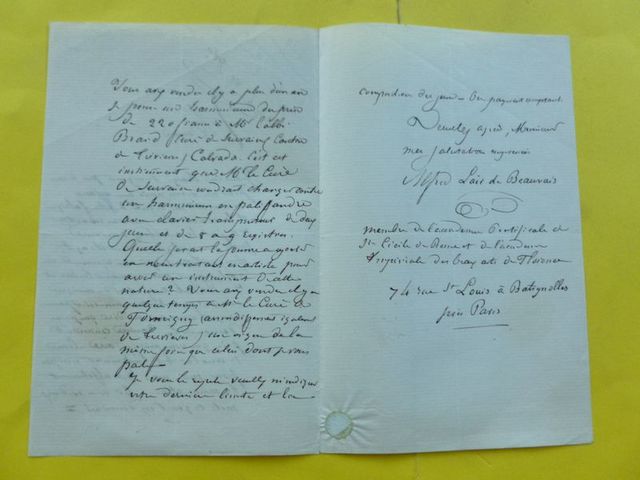 Vous avez vendu il y a plus d'un an
un harmonium du prix
de 220 francs à Mr l'abbé
Briard Curé de Survaine Canton
de Lisieux, Calvados. C'est cet
instrument que Mr le Curé
de Survaine voudrait changer contre
un harmonium en palissandre
avec clavier transpositeur de dix
jeux et de 8 a 9 registres.
Quelle serait la somme a ajouter
en
avec un instrument de cette
nature? Vous avez vendu il y a
quelque temps a Mr le Curé de
(arrondissement également
de Lisieux) un orgue de la
même force que celui dont je vous
parle
Je vous le répète veuillez m'indiquer
votre dernière limite et la
composition des jeux. On payera comptant.
Veuillez agréer, Monsieur
mes salutations empressées
Alfred Lair de Beauvais
membre de l'académie Pontificale de
Ste Cécile de Rome et de l'académie
Impériale des beaux arts de Florence
74 rue St Louis à Batignolles
près Paris